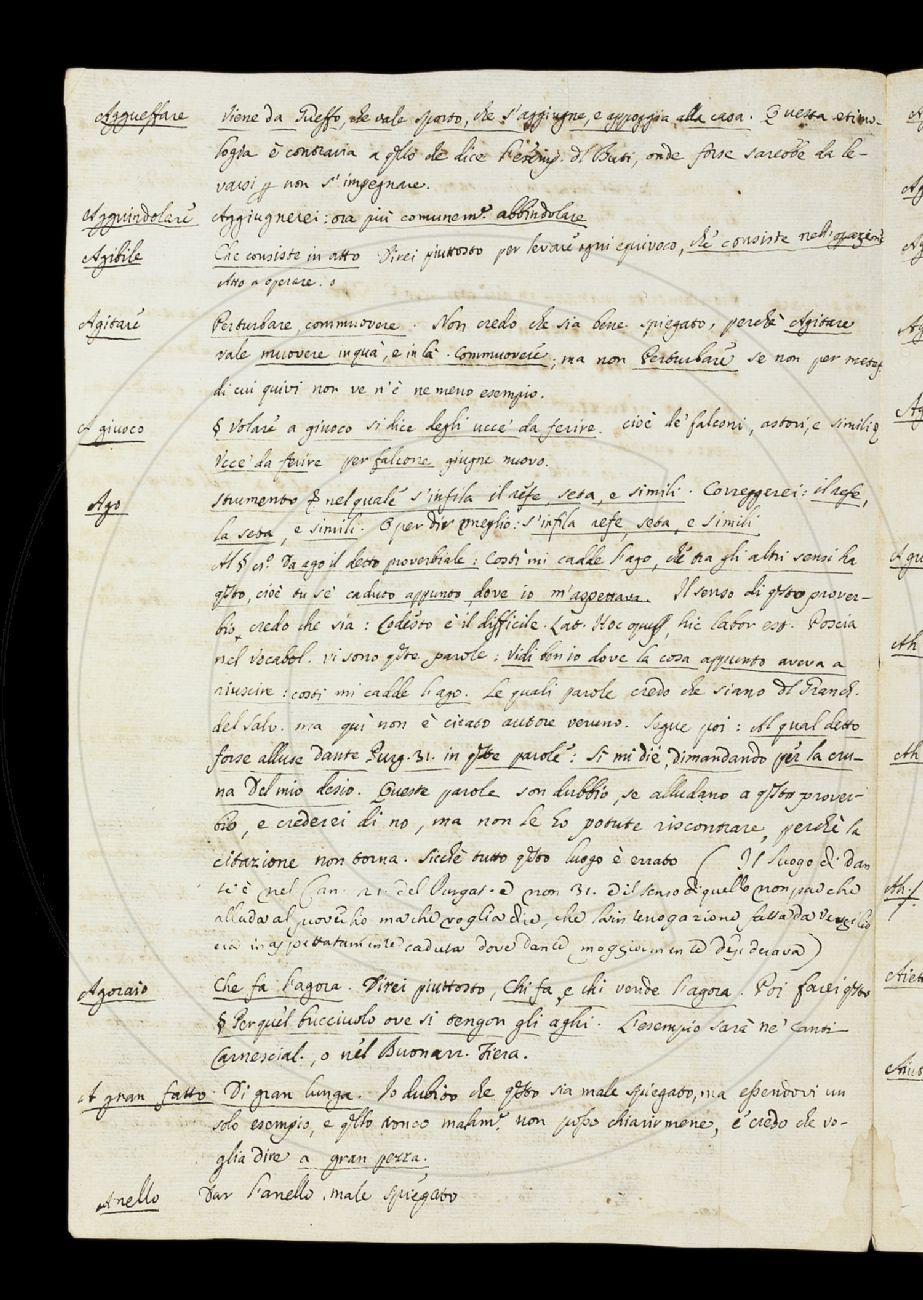 Aggueffare viene da Gueffo, che vale sporto, che s'aggiugne, e appoggia alla casa. Questa etimo-
logia è contraria a qllo che dice l'esemp. dl Buti, onde forse sarebbe da le-
varsi p non s'impegnare.
Agguindolare Aggiugnerei: ora più comunemte. abbindolare
Agibile Che consiste in atto Direi piuttosto per levare ogni equivoco, che consiste nell'operazione
Atto a operare.
Agitare Perturbare, commuovere. Non credo che sia bene spiegato, perchè Agitare
vale muovere in quà, e in là. Commuovere; ma non Perturbare se non per metaf
di cui quivi non ve n'è ne meno esempio.
A giuoco § Volare a giuoco si dice degli ucce' da ferire. cioè de' falconi, astori, e simili
Ucce' da ferire per falcone giugne nuovo.
Ago strumento nel quale s'infila il refe, seta, e simili. Correggerei: il refe,
la seta, e simili. O per dir meglio: s'infila refe, seta, e simili
Al § Da ago il detto proverbiale: Costì mi cadde l'ago, che tra gli altri sensi ha
qsto, cioè tu se' caduto appunto dove io m'aspettava. Il senso di qsto prover-
bio credo che sia: Codesto è il difficile. Lat. Hoc opus, hic labor est. Poscia
nel vocabol. vi sono qste parole: Vidi ben io dove la cosa appunto aveva a
riuscire: costì mi cadde l'ago. Le quali parole credo che siano dl Granch.
del Salv. ma quì non è citato autore veruno. Segue poi: Al qual detto
forse alluse Dante Purg. 31. in qste parole: Sì mi diè, dimandando per la cru-
na Del mio desio. Queste parole son dubbio, se alludano a qsto prover-
bio, e crederei di no, ma non le ho potute riscontrare, perchè la
citazione non torna. Sicchè tutto qsto luogo è errato ( Il luogo di Dan
te è nel Can. 21. del Purgat. e non 31. e il senso di quello non par che
alluda al proverbio ma che voglia dire, che l'interrogazione fatta da Vergilio
era inaspettatamente caduta dove Dante maggiormente desiderava)
Agoraio Che fa l'agora. Direi piuttosto, Chi fa, e chi vende l'agora. Poi farei qsto
§ Per quel bucciuolo ove si tengon gli aghi. L'esempio sarà ne' Canti
Carnescial., o nel Buonarr. Fiera.
A gran fatto. Di gran lunga. Io dubito che qsto sia male spiegato, ma essendovi un
solo esempio, e qllo tronco malamte. non posso chiarirmene, e credo che vo-
glia dire a gran pezza.
Anello Dar l'anello male spiegato